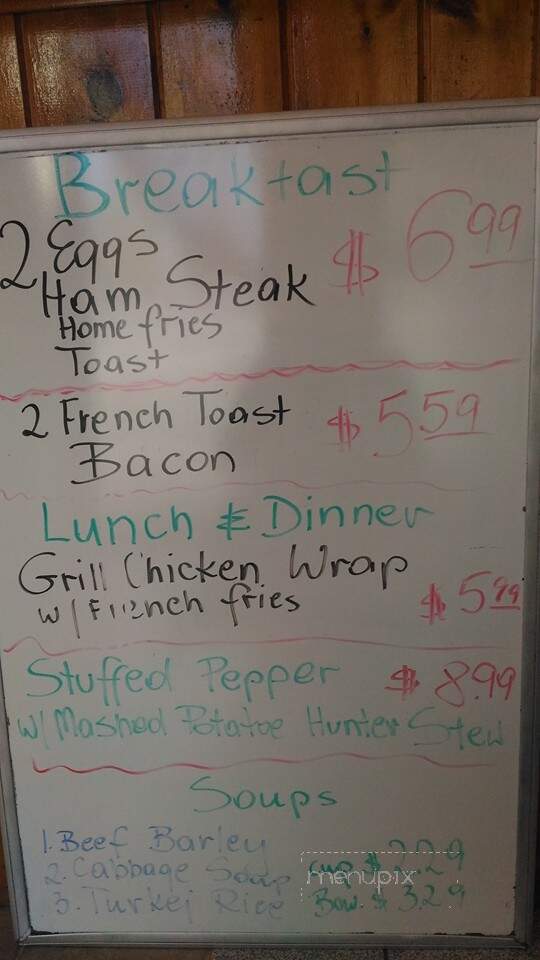 Breakfast
2 Eggs $ 6.99
Ham Steak
Home fries
Toast
2 French Toast $ 5.59
Bacon
Lunch & Dinner
Grill Chicken Wrap
w/ French fries $ 5.99
Stuffed Pepper $ 8.99
w/ Mashed Potatoe Hunter Stew
Soups
1. Beef Barley
2. Cabbage Soup Cup $ 2.29
3. Turkey Rice Bow. $ 3.29
menupix